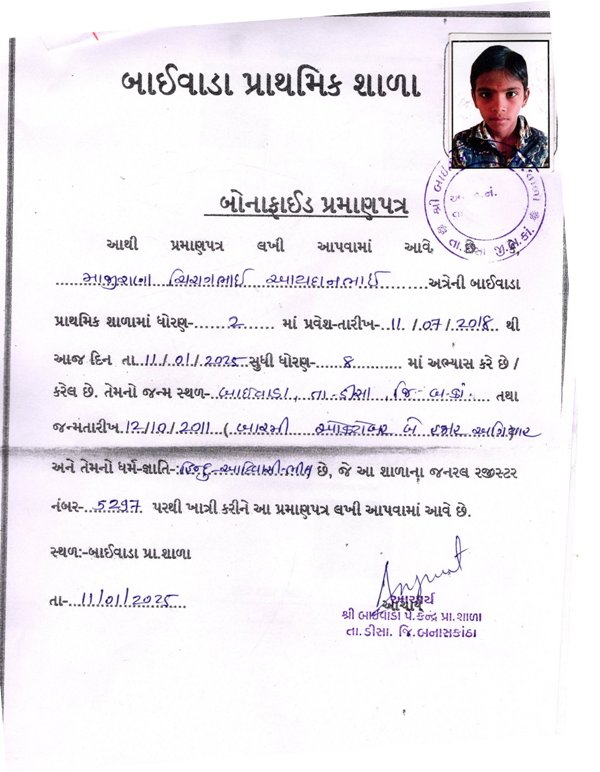 બાઈવાડા પ્રાથમિક શાળા
બોનાફાઈડ પ્રમાણપત્ર
આથી પ્રમાણપત્ર લખી આપવામાં આવે છે કે,
ચિરાગભાઈ અત્રેની બાઈવાડા
પ્રાથમિક શાળામાં ધોરણ- 2 માં પ્રવેશ-તારીખ- 11/07/2018 થી
આજ દિન તા 11/01/2025 સુધી ધોરણ- 8 માં અભ્યાસ કરે છે /
કરેલ છે. તેમનો જન્મ સ્થળ- બાઈવાડા, તા-ડીસા, જિ-બ.કાં. તથા
જન્મતારીખ 12/10/2011 ( બારમી ઓક્ટોબર બે હજાર અગિયાર
અને તેમનો ધર્મ-જ્ઞાતિ-: હિન્દુ-આદિવાસી-ભીલ છે, જે આ શાળાના જનરલ રજીસ્ટર
નંબર- 5297 પરથી ખાત્રી કરીને આ પ્રમાણપત્ર લખી આપવામાં આવે છે.
સ્થળ:-બાઈવાડા પ્રા.શાળા
તા- 11/01/2025
આચાર્ય
આચાર્ય
શ્રી બાઈવાડા પે.કેન્દ્ર પ્રા.શાળા
તા.ડીસા. જિ.બનાસકાંઠા